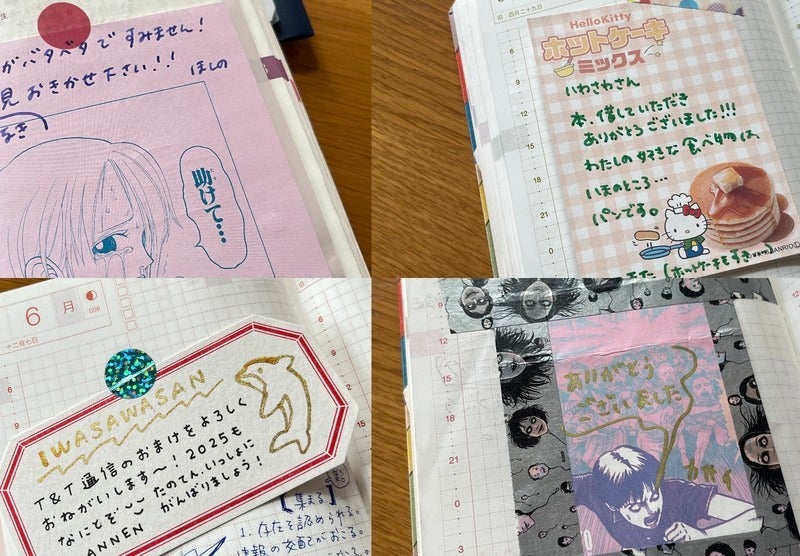 がバタバタですみません!
見 おきかせ下さい!!
ほしの
助けて…
旧 四月二十九日
HelloKitty
ホットケーキ
ミックス
いわさわさん
本、借していただき
ありがとうございました!!!
わたしの好きな食べ物は、
いまのところ…
パンです。
(ホットケーキもすき)
6月
006
十二月七日
IWASAWASAN
T&T通信のおまけをよろしく
おねがいします〜! 2025も
なにとぞ たのてん、いっしょに
ANNEN がんばりましょう!
【集まる】
1. 存在を認められる。
ありがとう
ございました